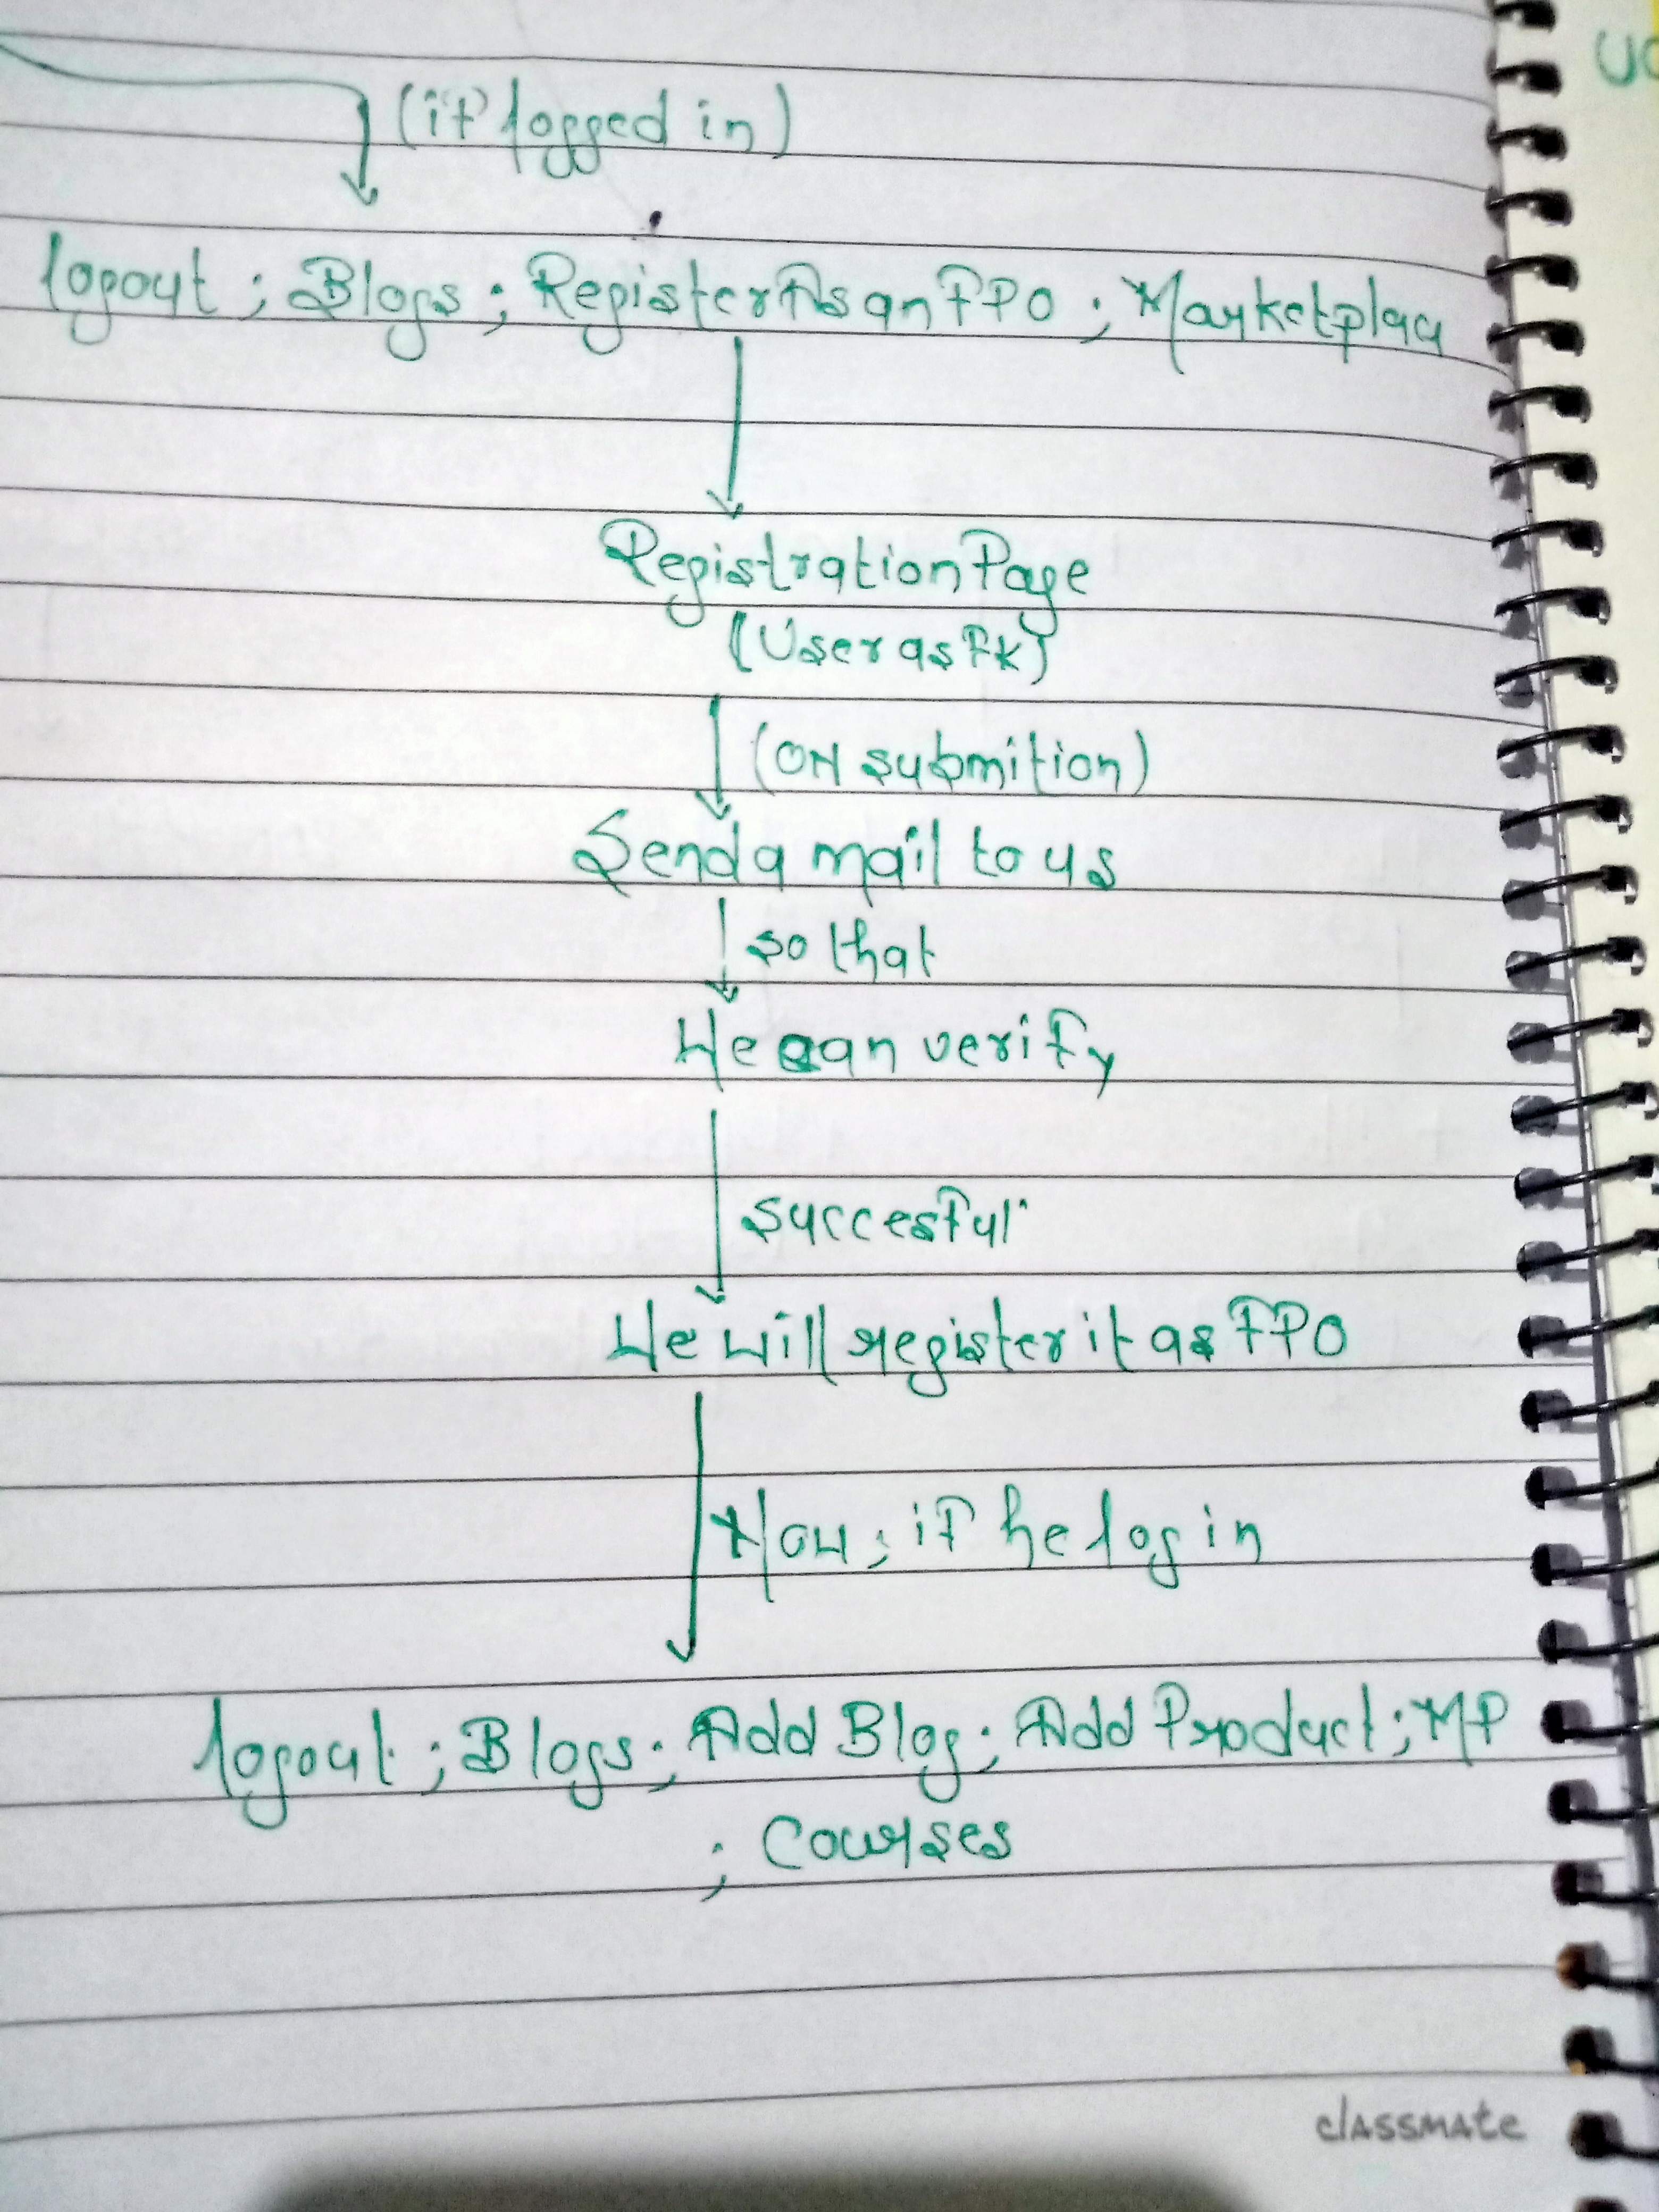 (if logged in)
logout ; Blogs ; Register As an FPO ; Marketplace
Registration Page
(User as FK)
(ON submition)
Send a mail to us
so that
We can verify
succesful
We will register it as FPO
Now ; if he log in
logout ; Blogs ; Add Blog ; Add Product ; MP
; Courses
classmate